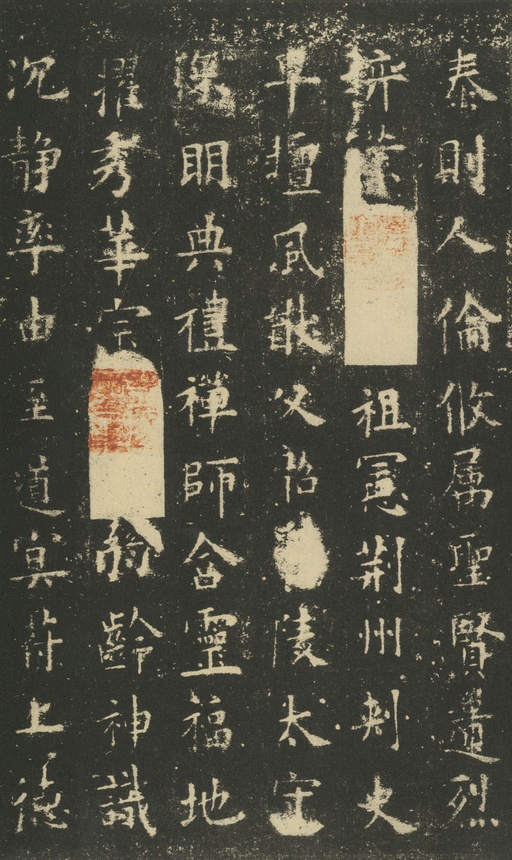 泰則人倫攸属聖賢遺烈
弈葉祖憲荆州刾史
早擅風猷父韶陵太守
深明典禮禪師含靈福地
擢秀華宗弱齡神識
沉静率由至道冥符上德